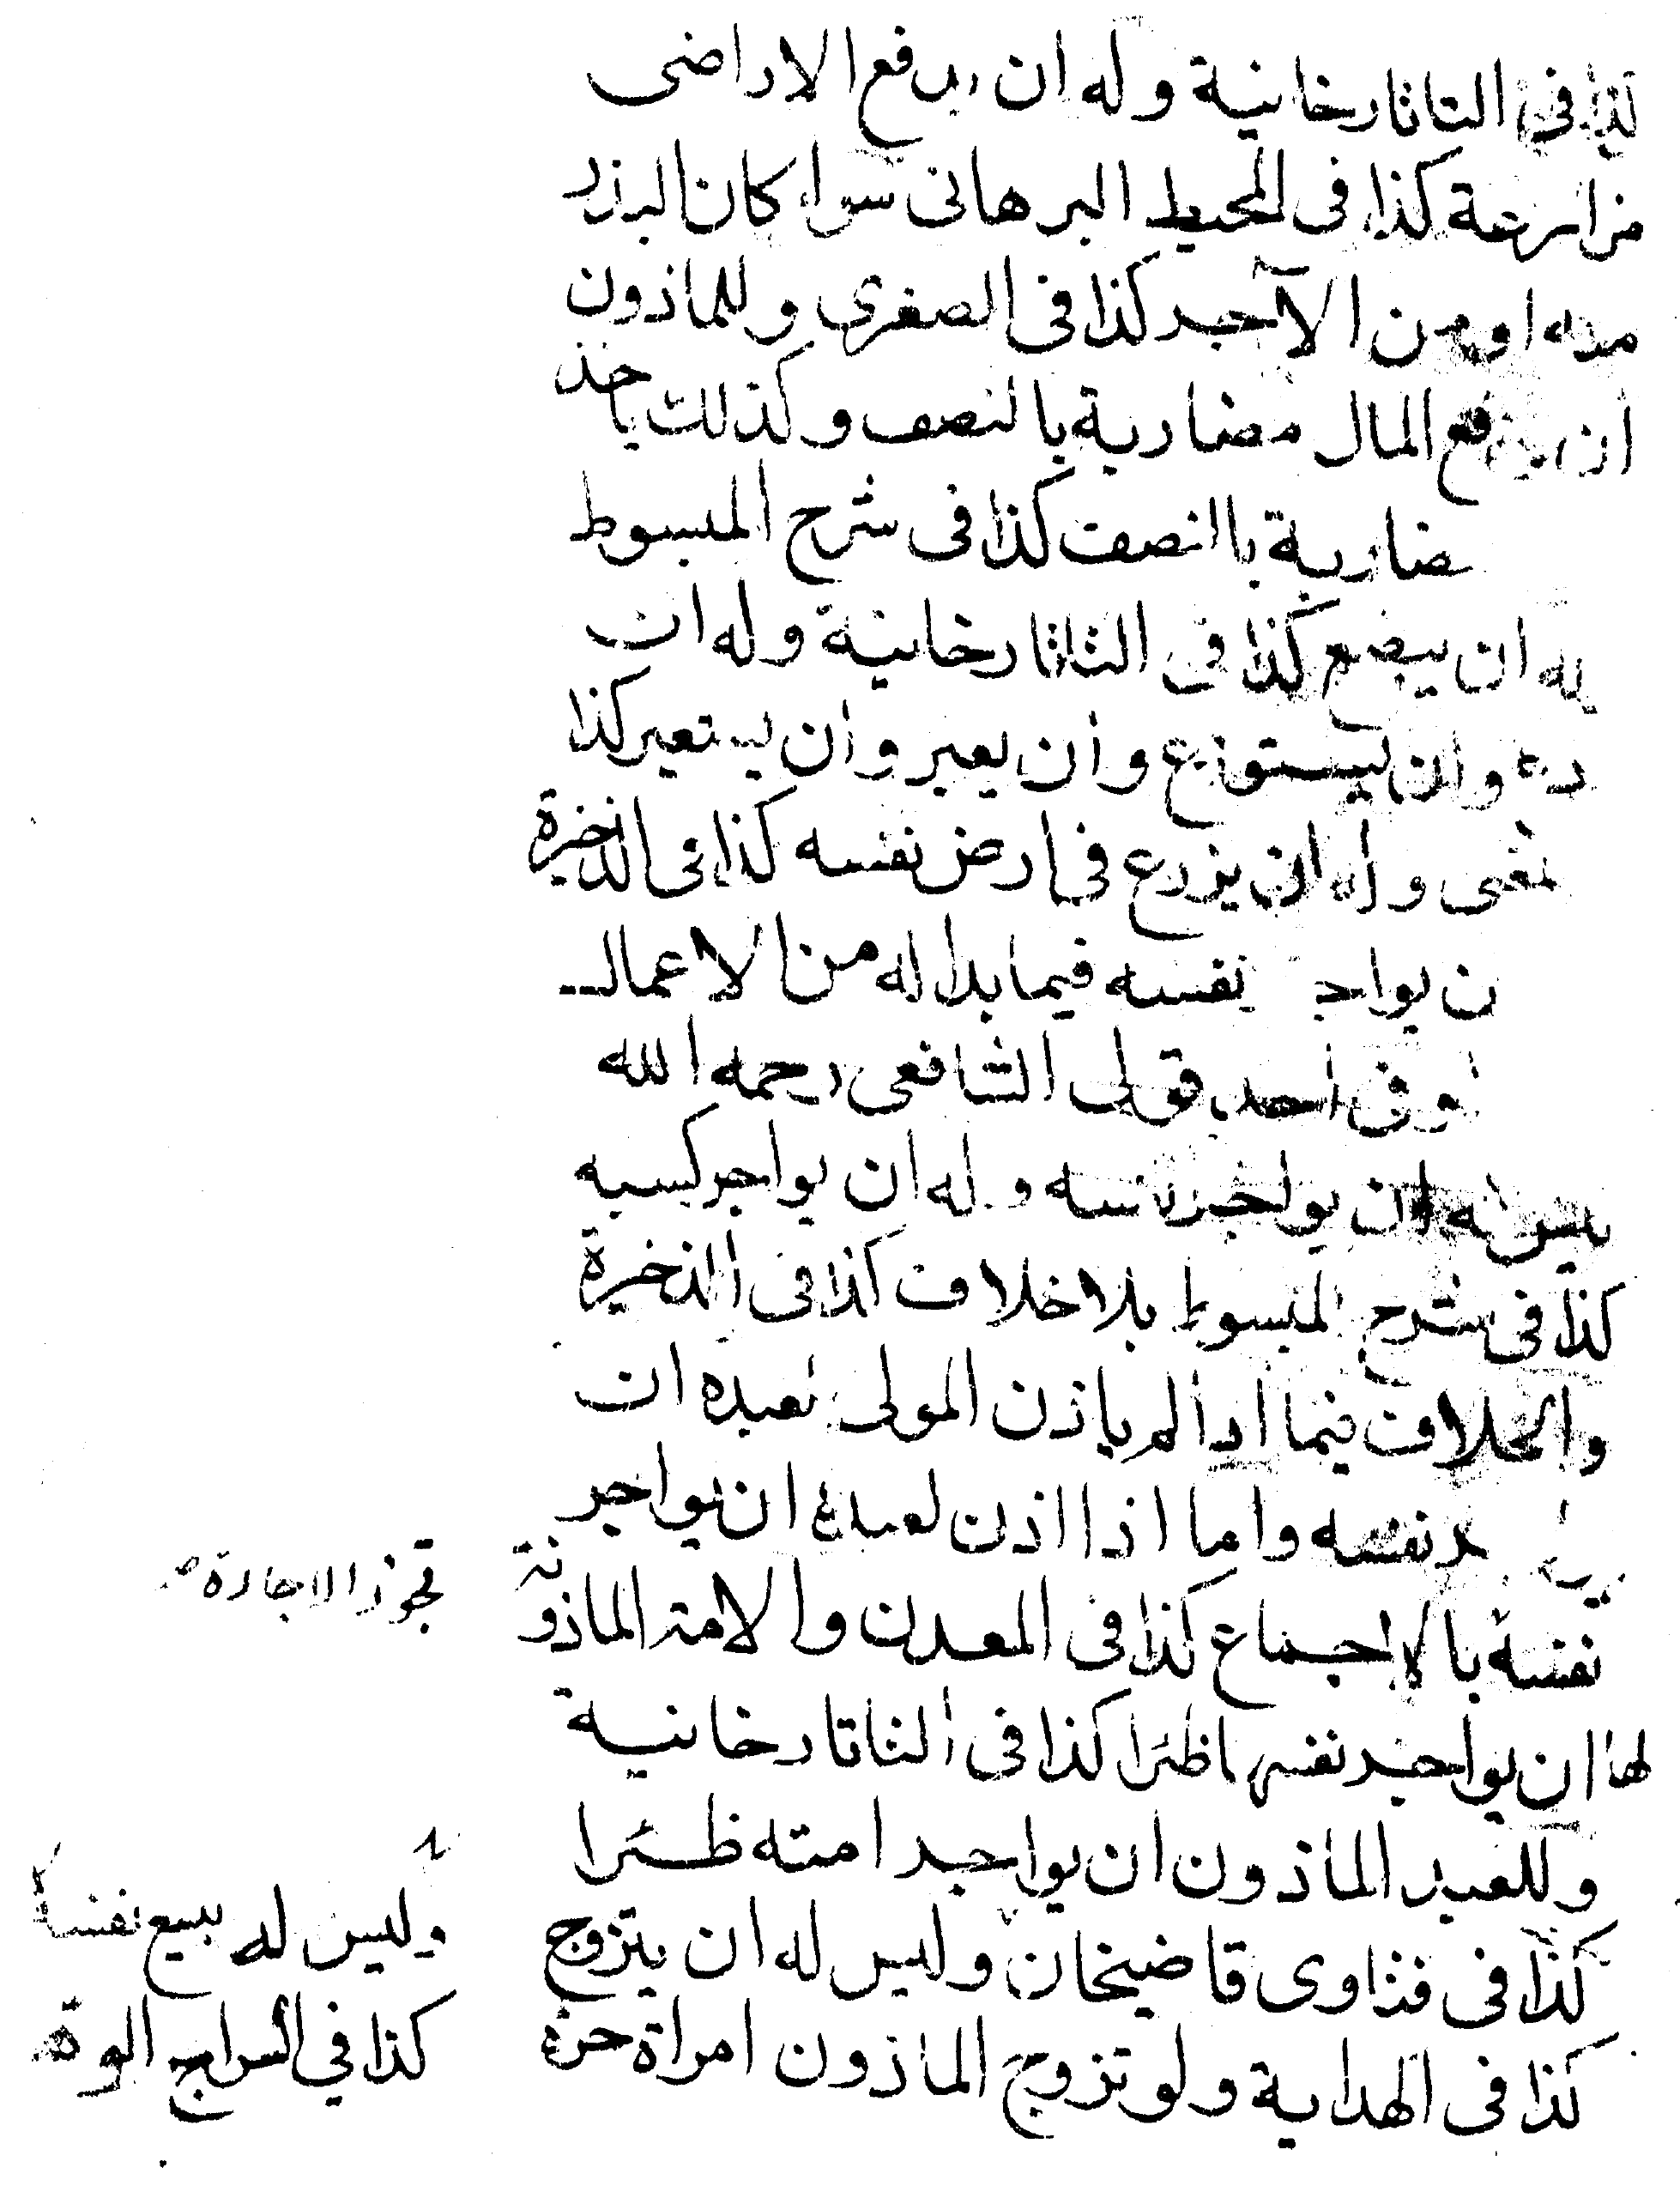 كذا فى التاتارخانية وله ان يدفع الاراضى
مزارعة كذا فى المحيط البرهانى سواء كان البذر
منه او من الآجر كذا فى الصغرى وللماذون
ان يدفع المال مضاربة بالنصف وكذلك ياخذ
ضاربة بالنصف كذا فى شرح المبسوط
له ان يبضع كذا فى التاتارخانية وله ان
وان يستودع وان يعير وان يستعير كذا
وله ان يزرع فى ارض نفسه كذا فى الذخيرة
ن يواجر نفسه فيما بدا له من الاعمال
وفى احد قولى الشافعى رحمه الله
ليس له ان يواجر نفسه وله ان يواجر كسبه
كذا فى شرح المبسوط بلا خلاف كذا فى الذخيرة
والخلاف فيما اذا لم ياذن المولى لعبده ان
نفسه واما اذا اذن لعبده ان يواجر
نفسه بالاجماع كذا فى المعدن والامة الماذونة
تجوز الاجارة
لها ان يواجر نفسها ظئرا كذا فى التاتارخانية
وللعبد الماذون ان يواجر امته ظئرا
كذا فى فتاوى قاضيخان وليس له ان يتزوج
كذا فى الهداية ولو تزوج الماذون امراة حرة
وليس له بيع نفسه
كذا في السراج الو